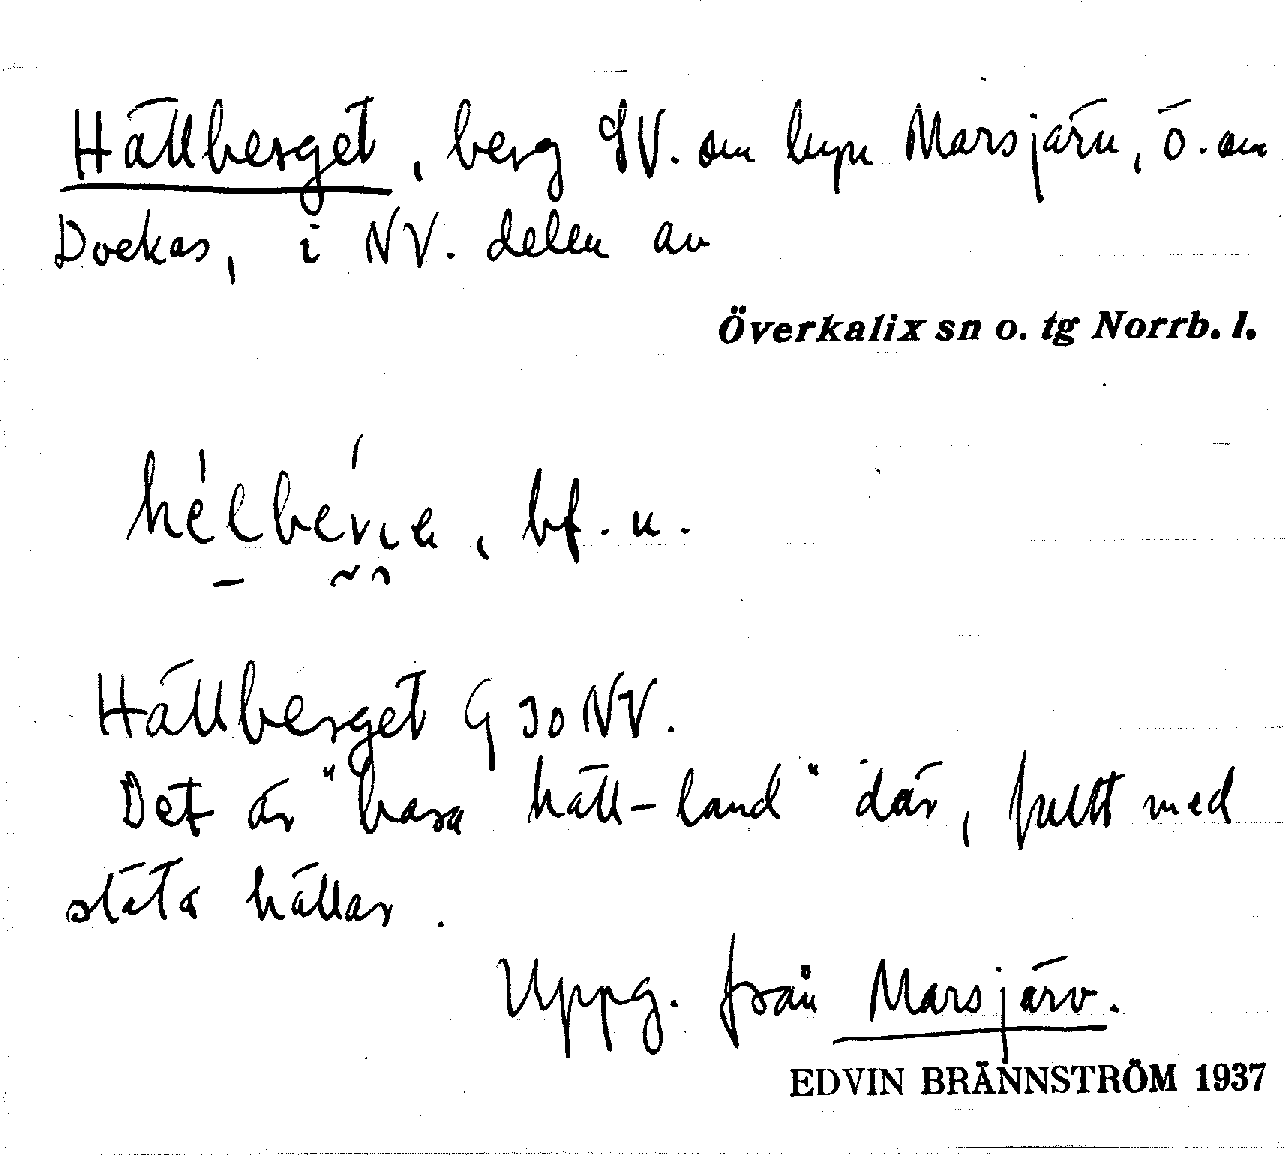 Hällberget, berg SV. om byn Marsjärv, ö. om
Dockas, i NV. delen av
Överkalix sn o. tg Norrb. l.
bf. n.
Hällberget G 30 NV.
Det är "bara häll-land" där, fullt med
släta hällar.
Uppg. från Marsjärv.
EDVIN BRÄNNSTRÖM 1937